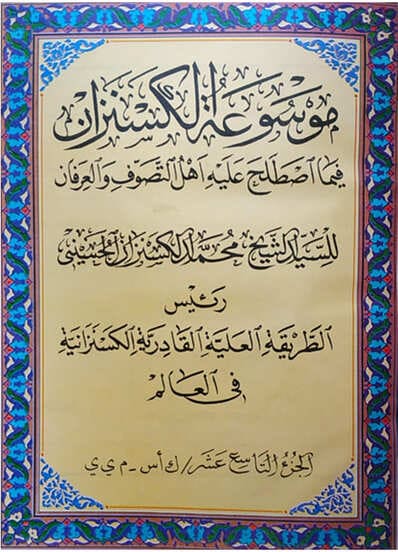 موسوعة الكسنزان
فيما اصطلح عليه أهل التصوف والعرفان
للسيد الشيخ محمد الكسنزان الحسيني
رئيس
الطريقة العلية القادرية الكسنزانية
في العالم
الجزء التاسع عشر / ك أس - م ي ي